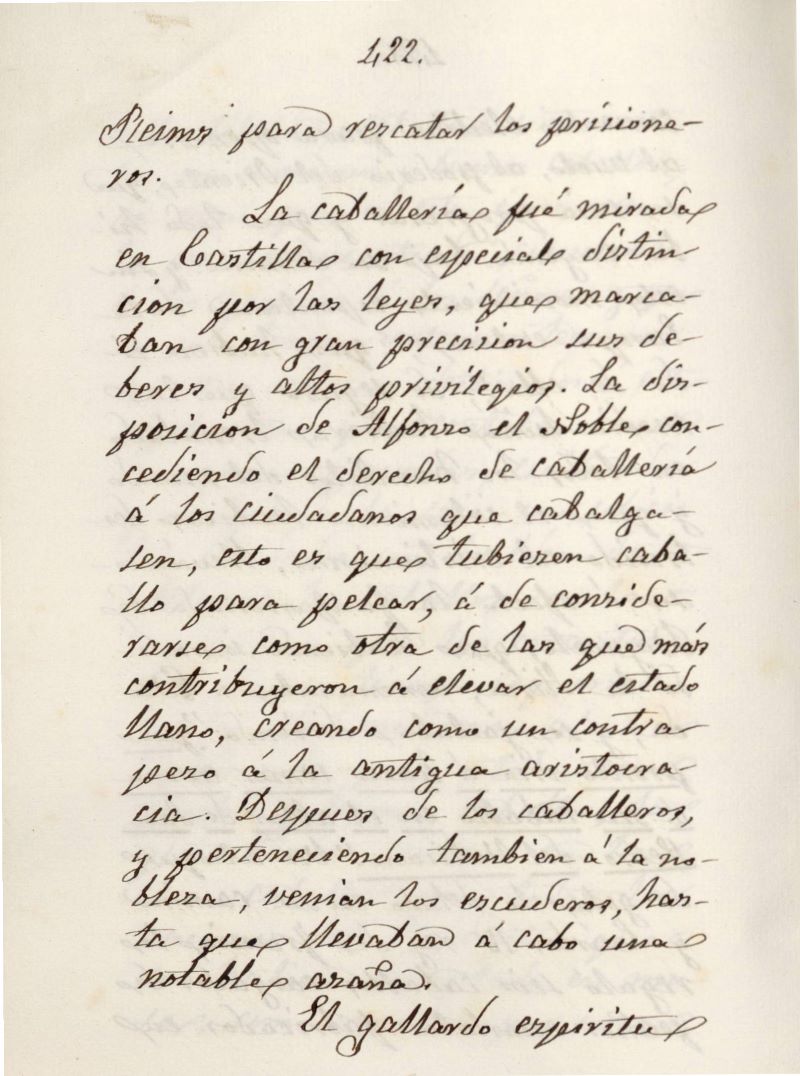 422.
Reims para rescatar los prisione-
ros.
La caballería fué mirada
en Castilla con especial distin
cion por las leyes, que marca-
ban con gran precision sus de-
beres y altos privilegios. La dis-
posicion de Alfonso el Noble con-
cediendo el derecho de caballería
á los ciudadanos que cabalga-
sen, esto es que tubiesen caba-
llo para pelear, á de conside-
rarse como otra de las que más
contribuyeron á elevar el estado
llano, creando como un contra-
pezo á la antigua aristocra-
cia. Despues de los caballeros,
y perteneciendo tambien á la no-
bleza, venian los escuderos, has-
ta que llevaban á cabo una
notable azaña.
El gallardo espiritu